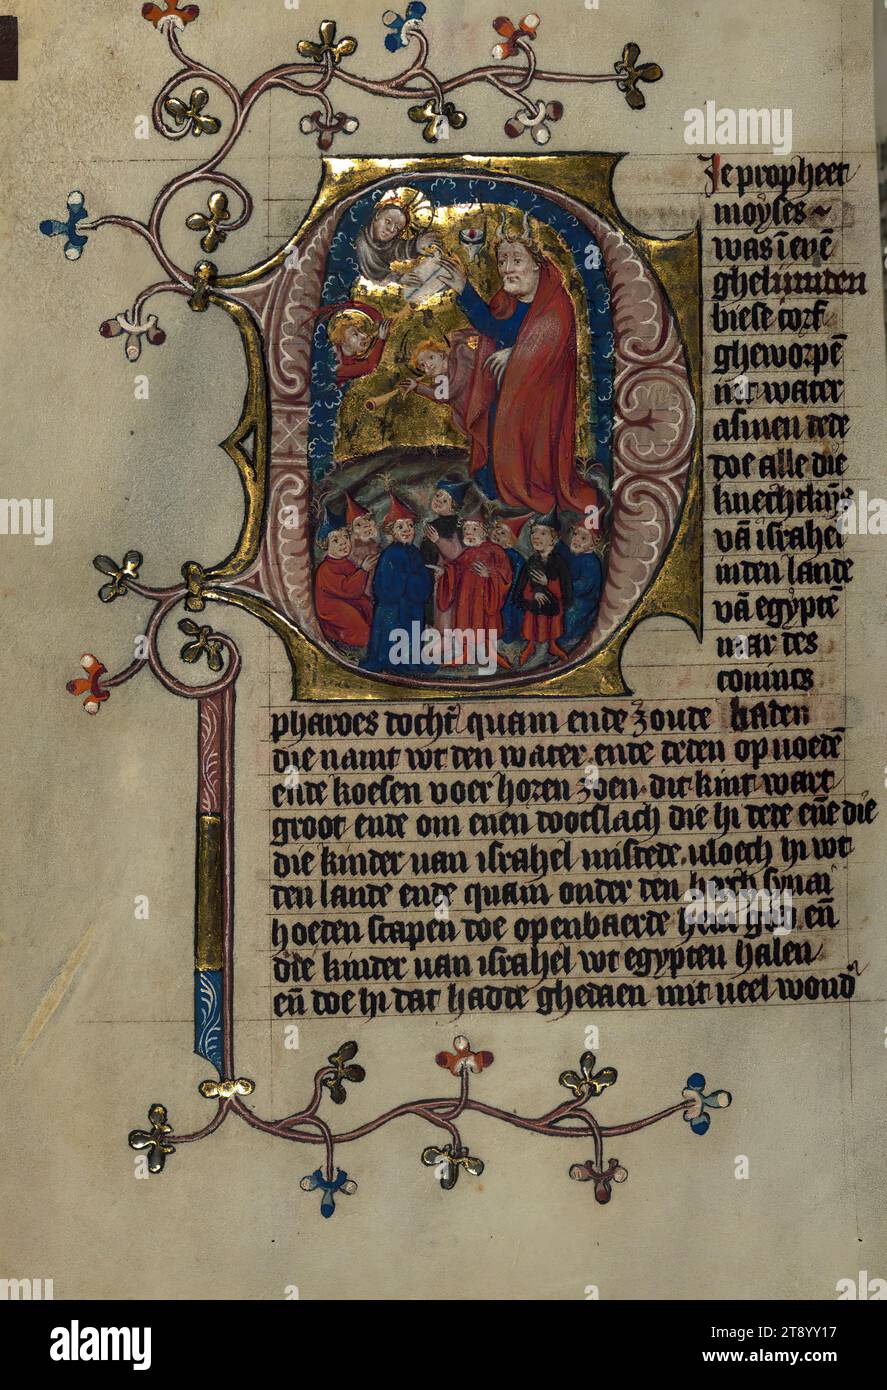 Je propheet
moyses
was ī eyē
ghebunden
biese corf
gheworpē
int water
alsmen dede
doe alle die
knechtkijs
vā israhel
inden lande
vā egyptē
mar des
coninc
pharoes dochť quam ende zoude baden
die namt wt den water ende deden op uoedē
ende koesen voer horen zoen dit kint wart
groot ende om enen dootslach die hi dede eñe die
die kinder uan israhel misdede uloech hi wt
den lande ende quam onder den berch synai
hoeden scapen doe openbaerde hem god eñ
die kinder uan israhel wt egypten halen
eñ doe hi dat hadde ghedaen mit ueel wond
alamy
Image ID: 2T8YY17
www.alamy.com